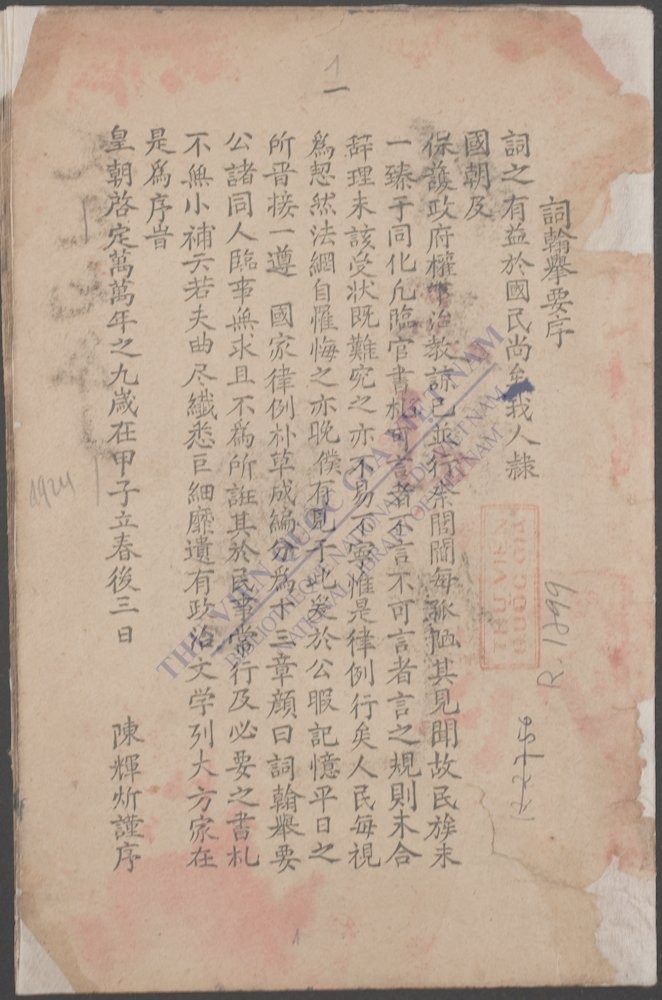 1
一
詞翰舉要序
詞之有益於國民尚矣我人隸
國朝及
保護政府權下治教諒已並行柰閭閻每孤陋其見聞故民族未
一臻于同化凢臨官書札可言者不言不可言者言之規則未合
辞理未該受状既難究之亦不易不寧惟是律例行矣人民每視
為恝然法網自罹悔之亦晚僕有見于此爰於公暇記憶平日之
所晋接一遵 國家律例朴草成編分為十三章顔曰詞翰舉要
公諸同人臨事無求且不為所誑其於民事常行及必要之書札
不無小補云若夫曲尽纖悉巨細靡遺有政治文学列大方家在
是為序旹
皇朝啓定萬萬年之九歲在甲子立春後三日 陳輝炘謹序
1924
R.1849
THƯ VIỆN
QUỐC GIA
THƯ VIỆN QUỐC GIA VIỆT NAM
BIBLIOTHÈQUE NATIONALE DU VIETNAM
NATIONAL LIBRARY OF VIETNAM